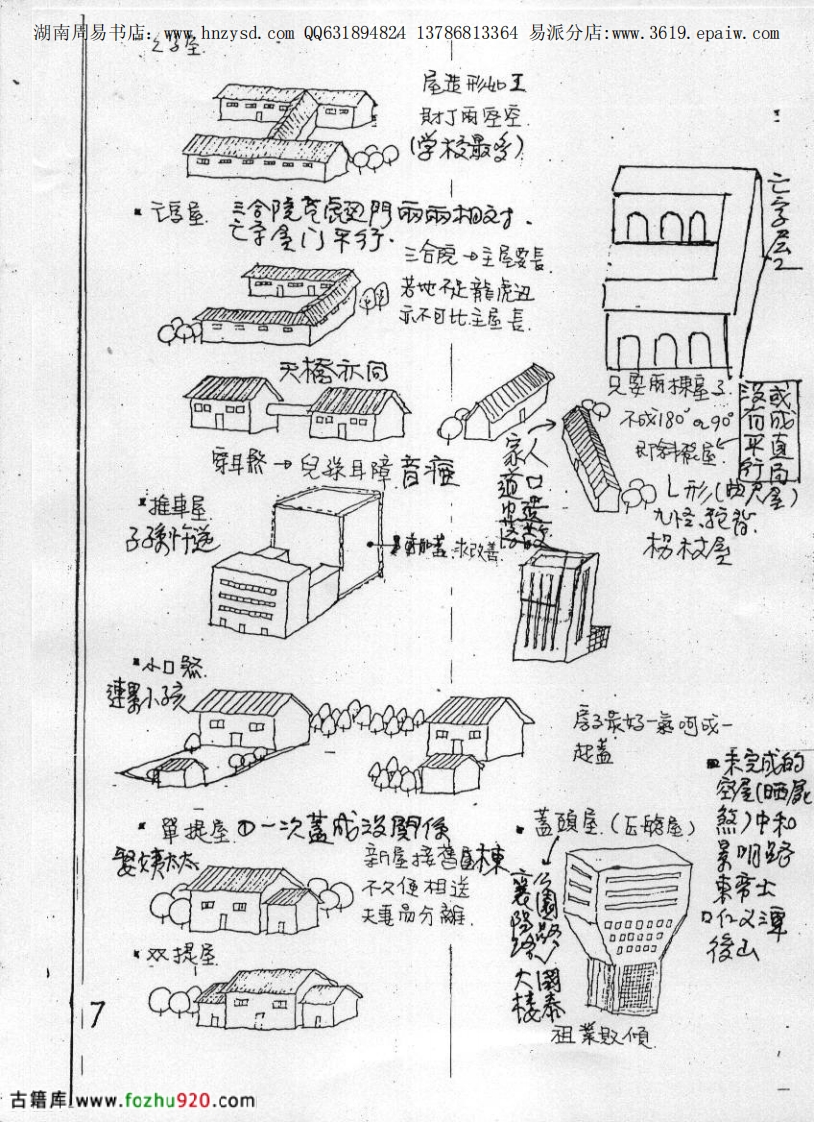 湖南周易书店：www.hnzysd.com QQ631894824 13786813364 易派分店:www.3619.epaiw.com
屋造形如工
財丁兩空空
(学校最多)
亡字屋
三合院 門兩兩相对．
亡字屋门平行．
三合院→主屋要長
若地不足龍虎边
亦不可比主屋長
亡字屋
天橋亦同
穿耳煞→兒孫耳障 音癌
只要兩棟屋子
不成180°or90°
即斜飛屋
或成直局
沒有平行
L形(曲尺屋)
九怪、駝背
楊枝屋
家道中落
人口
推車屋
子孫忤逆
加蓋 求改善
小口煞
連累小孩
房子最好一氣呵成一
起蓋
未完成的
空屋(晒屍
煞)中和
景明路
東帝士
後山
單提屋 ①一次蓋成沒關係
娶姨太太
新屋接舊棟
不久便相送
夫妻易分離
双提屋
蓋頭屋
公園路
襄陽路
國泰
大樓
祖業敗傾
7
古籍库 www.fozhu920.com